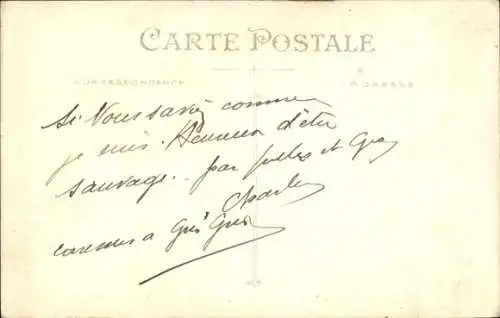 CARTE POSTALE
CORRESPONDANCE
ADRESSE
Si Vous saviez comme
je suis. Heureux d'être
sauvage.. par et
Charles
caresses a Gris Gris